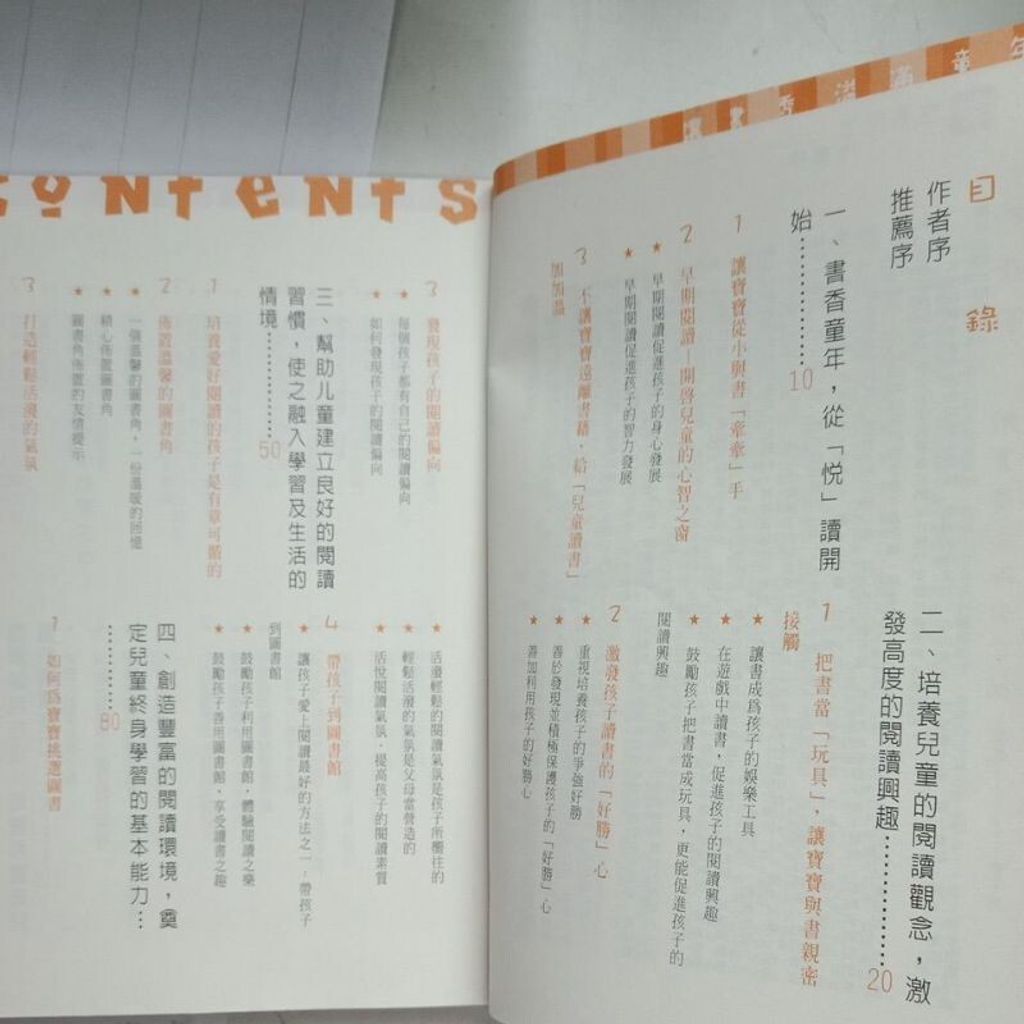 書香溢滿童年
目錄
作者序
推薦序
一、書香童年，從「悅」讀開
始………………10
1 讓寶寶從小與書「牽牽」手
2 早期閱讀—開啓兒童的心智之窗
★ 早期閱讀促進孩子的身心發展
★ 早期閱讀促進孩子的智力發展
3 不讓寶寶遠離書籍，給「兒童讀書」
加加溫
二、培養兒童的閱讀觀念，激
發高度的閱讀興趣………………20
1 把書當「玩具」，讓寶寶與書親密
接觸
★ 讓書成爲孩子的娛樂工具
★ 在遊戲中讀書，促進孩子的閱讀興趣
★ 鼓勵孩子把書當成玩具，更能促進孩子的
閱讀興趣
2 激發孩子讀書的「好勝」心
★ 重視培養孩子的爭強好勝
★ 善於發現並積極保護孩子的「好勝」心
★ 善加利用孩子的好勝心
contents
3 發現孩子的閱讀偏向
★ 每個孩子都有自己的閱讀偏向
★ 如何發現孩子的閱讀偏向
三、幫助儿童建立良好的閱讀
習慣，使之融入學習及生活的
情境………………50
1 培養愛好閱讀的孩子是有章可循的
2 佈置溫馨的圖書角
★ 一個溫馨的圖書角，一份溫暖的回憶
★ 精心佈置圖書角
★ 圖書角佈置的友情提示
3 打造輕鬆活潑的氣氛
★ 活潑輕鬆的閱讀氣氛是孩子所嚮往的
★ 輕鬆活潑的氣氛是父母當營造的
★ 活悅閱讀氣氛，提高孩子的閱讀素質
4 帶孩子到圖書館
★ 讓孩子愛上閱讀最好的方法之一：帶孩子
到圖書館
★ 鼓勵孩子利用圖書館，體驗閱讀之樂
★ 鼓勵孩子善用圖書館，享受讀書之趣
四、創造豐富的閱讀環境，奠
定兒童終身學習的基本能力…
………………80
1 如何爲寶寶挑選圖書